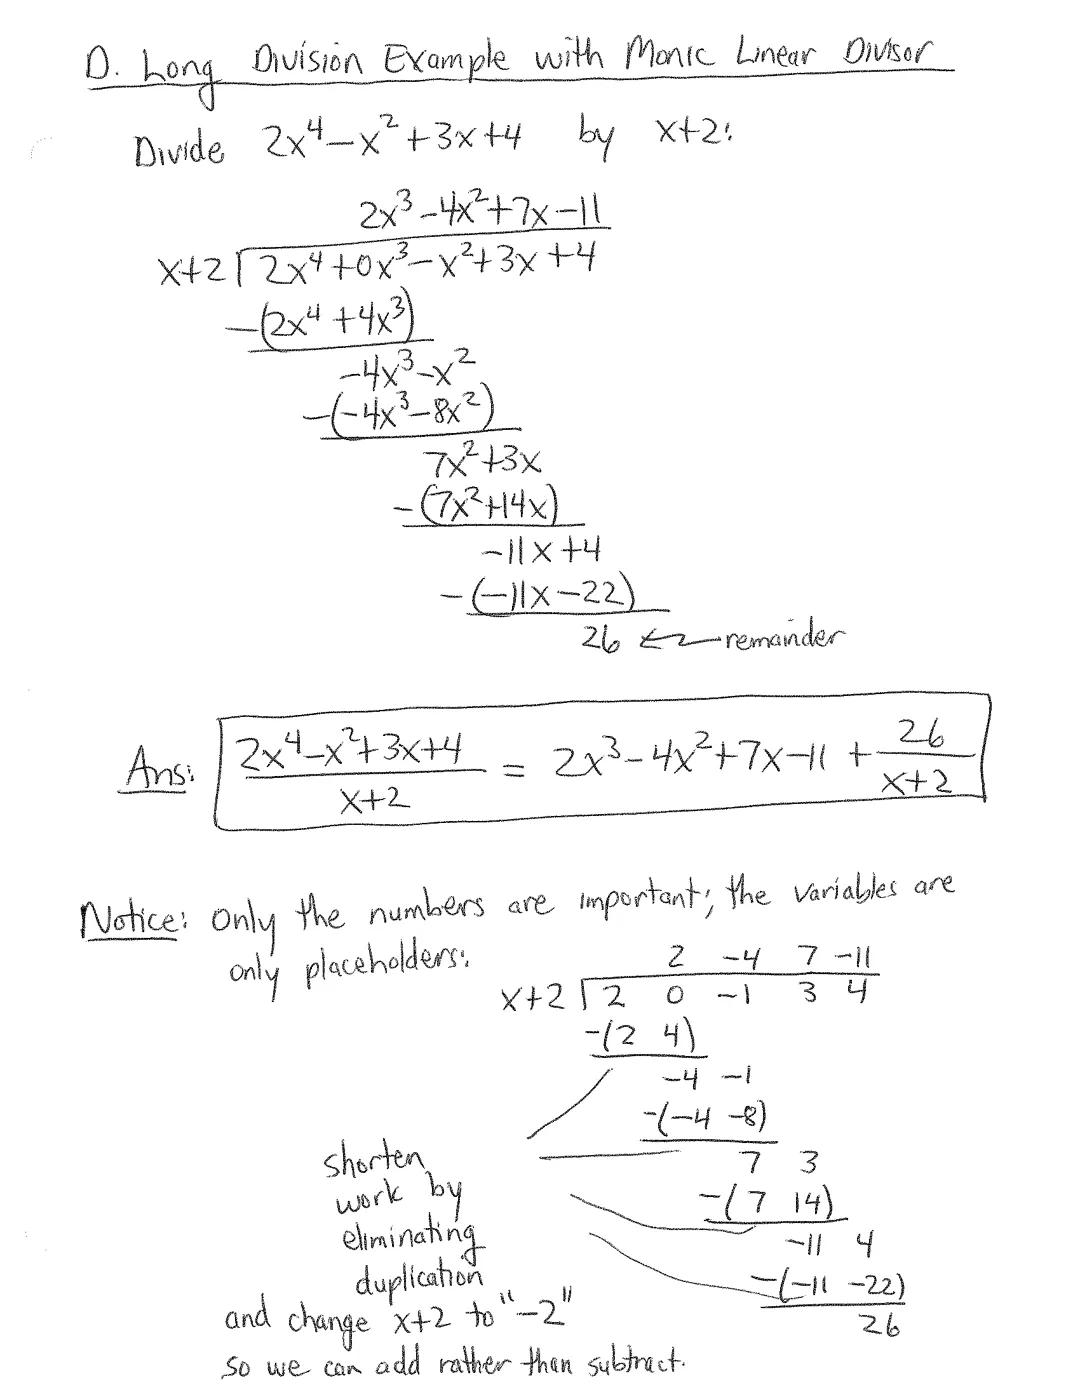 D. Long Division Example with Monic Linear Divisor
Divide 2x⁴-x²+3x+4 by x+2:
2x³-4x²+7x-11
x+2 ) 2x⁴+0x³-x²+3x+4
-(2x⁴+4x³)
-4x³-x²
-(-4x³-8x²)
7x²+3x
-(7x²+14x)
-11x+4
-(-11x-22)
26 ← remainder
Ans: (2x⁴-x²+3x+4)/(x+2) = 2x³-4x²+7x-11 + 26/(x+2)
Notice: Only the numbers are important; the variables are
only placeholders:
2 -4 7 -11
x+2 ) 2 0 -1 3 4
-(2 4)
-4 -1
-(-4 -8)
7 3
-(7 14)
-11 4
-(-11 -22)
26
shorten
work by
eliminating
duplication
and change x+2 to "-2"
so we can add rather than subtract.